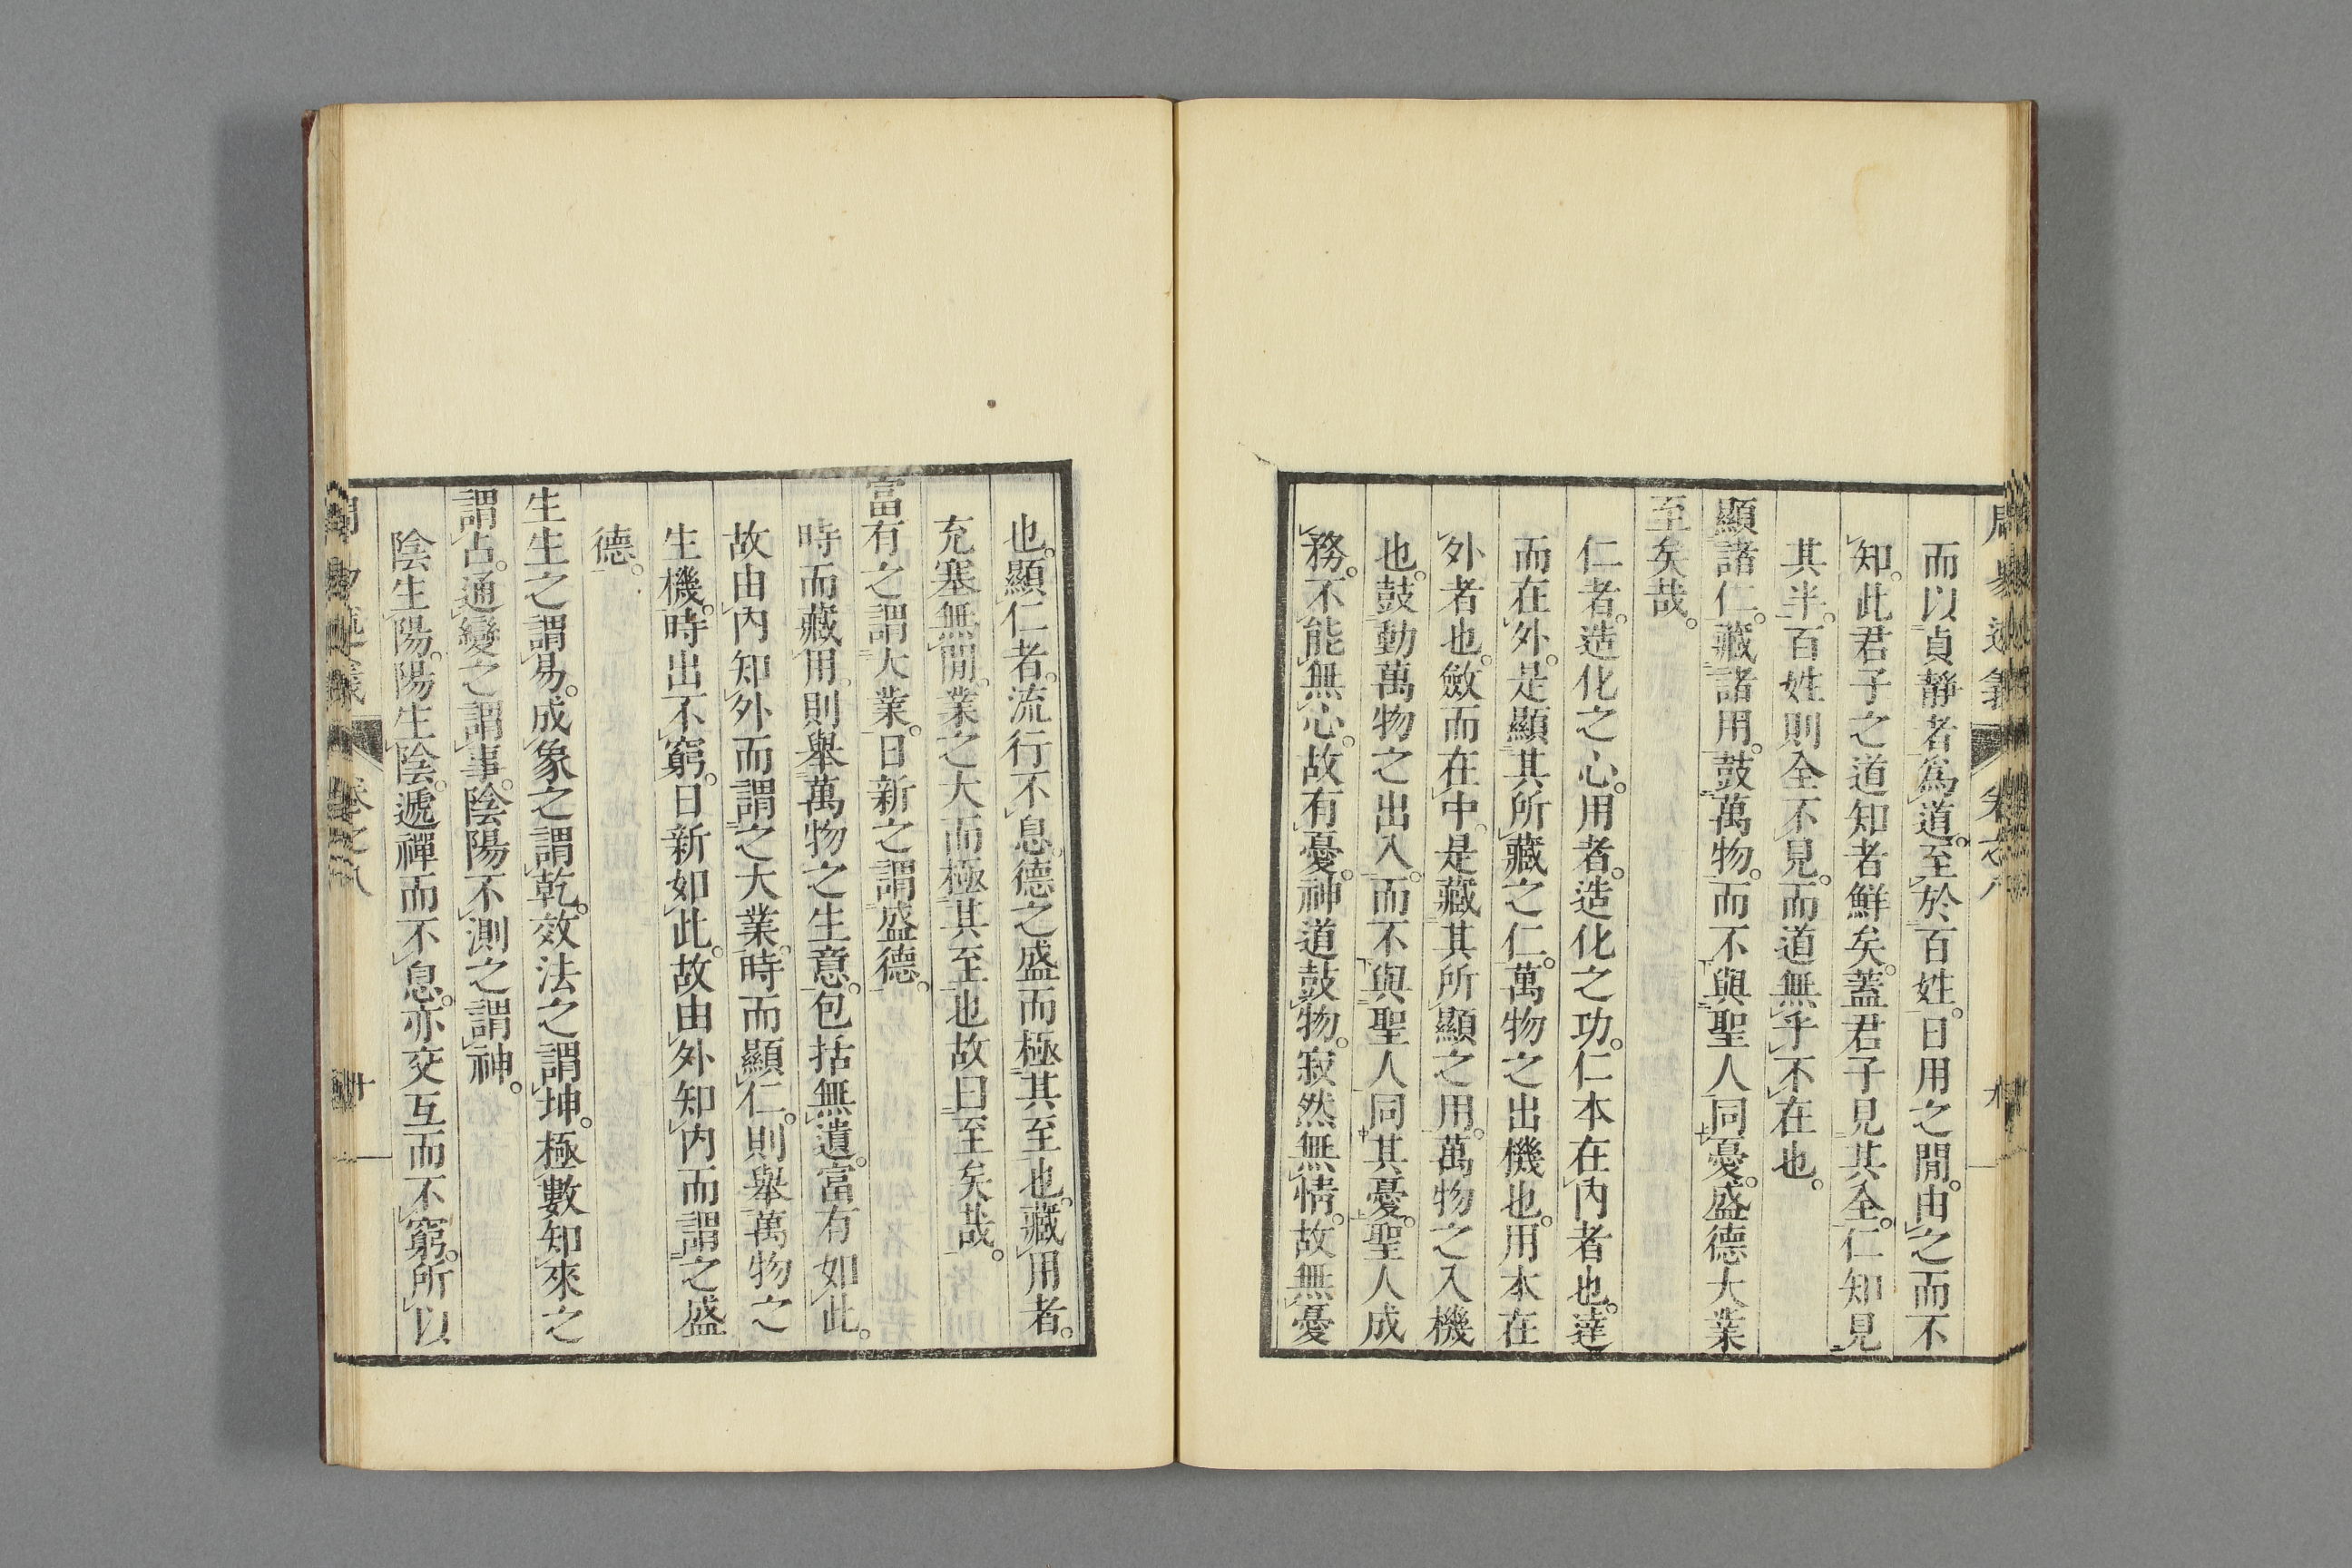 而以貞靜者爲道。至於百姓。日用之閒。由之而不
知。此君子之道知者鮮矣。蓋君子見其全。仁知見
其半。百姓則全不見。而道無乎不在也。
顯諸仁。藏諸用。鼓萬物。而不與聖人同憂。盛德大業
至矣哉。
仁者。造化之心。用者。造化之功。仁本在內者也。達
而在外。是顯其所藏之仁。萬物之出機也。用本在
外者也。斂而在中。是藏其所顯之用。萬物之入機
也。鼓動萬物之出入。而不與聖人同其憂。聖人成
務。不能無心。故有憂。神道鼓物。寂然無情。故無憂
也。顯仁者。流行不息。德之盛而極其至也。藏用者。
充塞無閒。業之大而極其至也故曰至矣哉。
富有之謂大業。日新之謂盛德。
時而藏用。則舉萬物之生意。包括無遺。富有如此。
故由內知外而謂之大業。時而顯仁。則舉萬物之
生機。時出不窮。日新如此。故由外知內而謂之盛
德。
生生之謂易。成象之謂乾。效法之謂坤。極數知來之
謂占。通變之謂事。陰陽不測之謂神。
陰生陽。陽生陰。遞禪而不息。亦交互而不窮。所以
卷之八